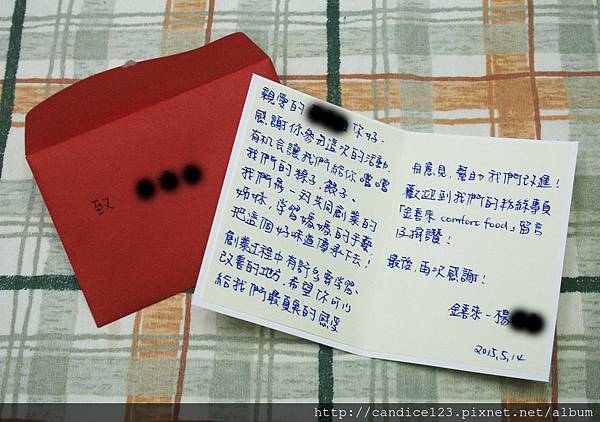 致
親愛的 你好，
感謝你參加這次的活動，
有机会讓我們給你嚐嚐
我們的粽子、餃子。
我們是一对共同創業的
姊妹，學習媽媽的手藝，
把這個好味道傳承下去！
創業过程中有許多要學習、
改善的地方，希望你可以
給我們最真實的感受
与意見，幫助我們改進！
歡迎到我們的粉絲專頁
「金喜來 comfore food」留言
按讚！
最後，再次感謝！
金喜來-楊
2015.5.14
http://candice123.pixnet.net/album